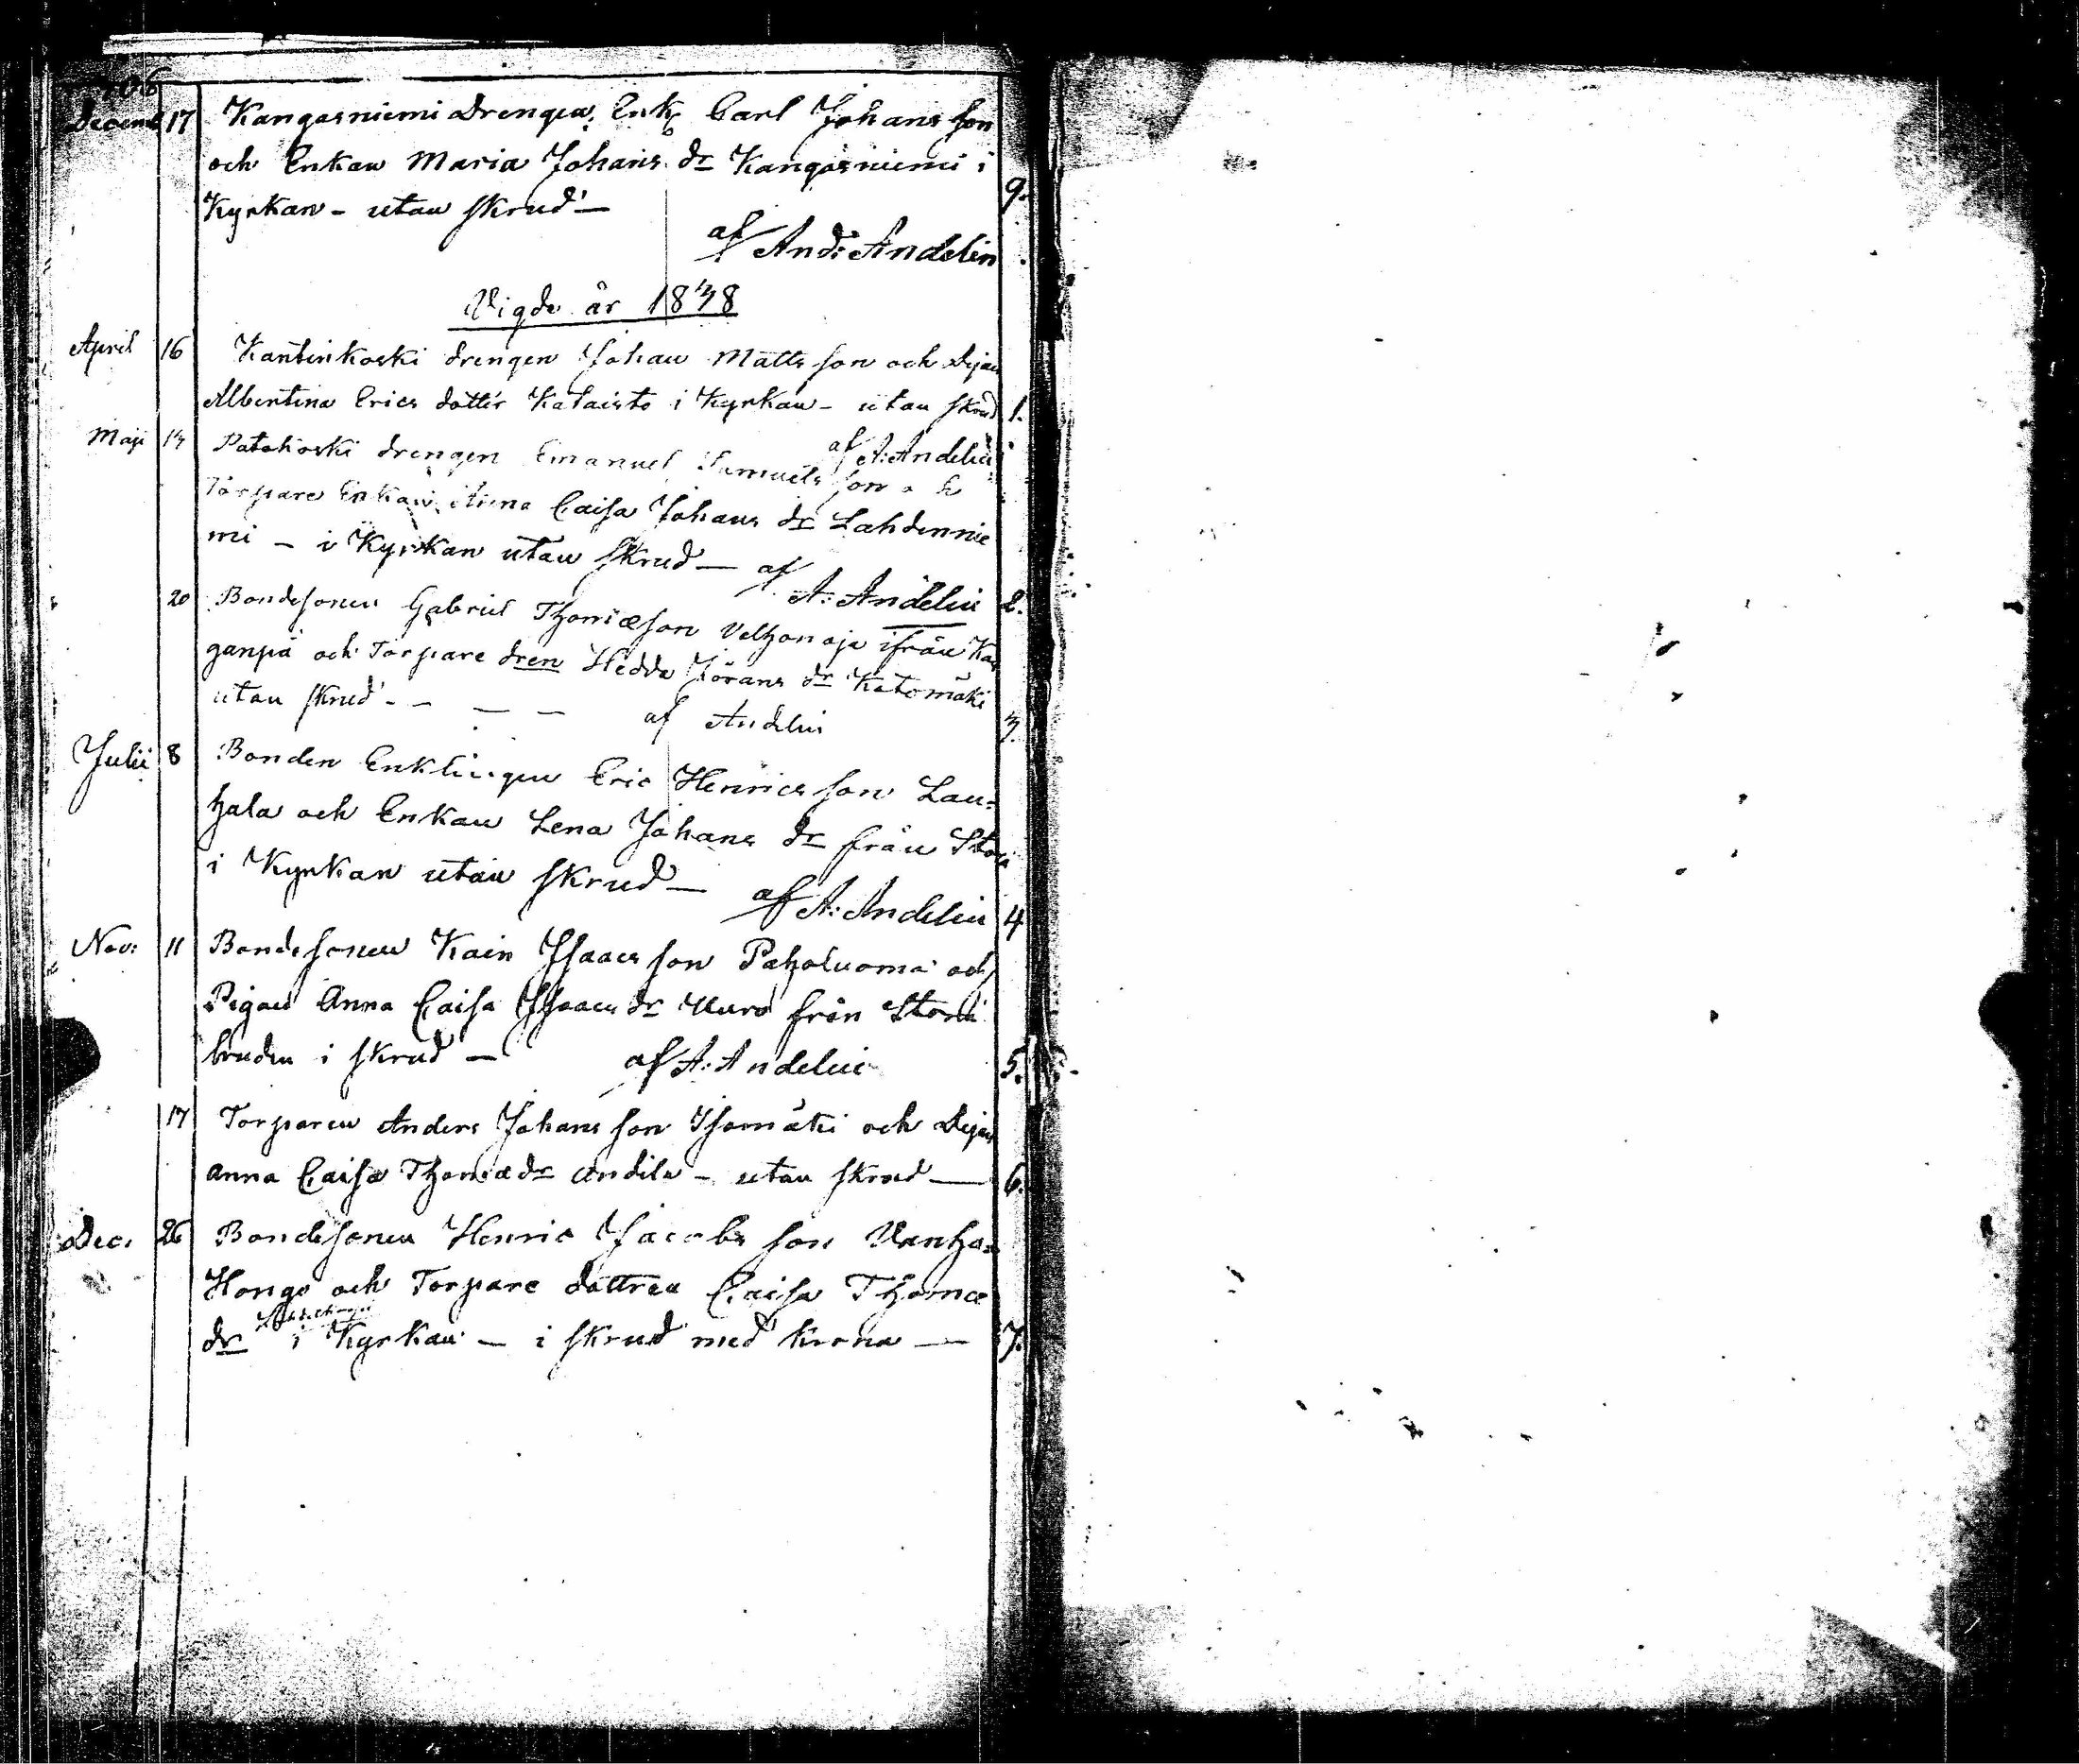 Decemb 17 Kangasniemi Drengen, Enk. Carl Johans son
och Enkan Maria Johans dr Kangasniemi i
Kyrkan - utan skrud - 9.
af And: Andelin
Vigde år 1838
April 16 Kantinkoski drengen Johan Matts son och Pigan
Albertina Erics dotter Kataisto i Kyrkan - utan skrud 1.
af A: Andelin
Maji 13 Patokoski drengen Emanuel Samuels son
Torpare Enkan Caisa Johans dr Lahdennie
mi - i Kyrkan utan skrud - af
A: Andelin 2.
20 Bondesonen Gabriel Thomæson ifrån Kan
ganpä och Torpare dren Hedda Jörans dr Katomäki
utan skrud - - - - af Andelin 3.
Julii 8 Bonden Enklingen Eric Henrics son Lau=
hala och Enkan Lena Johans dr från
i Kyrkan utan skrud -
af A: Andelin 4
Nov: 11 Bondesonen Kain Isaacs son Paholuoma och
Pigan Anna Caisa Isaacs dr Kuro från
bruden i skrud - af A: Andelin 5.
17 Torparen Anders Johans son Isomäki och Pigan
Anna Caisa Thomædr Andila - utan skrud - 6.
Dec. 26 Bondesonen Henric Jacobs son Vanha=
Hongo och Torpare dottren Caisa Thomæ
dr i Kyrkan - i skrud med krona - 7.